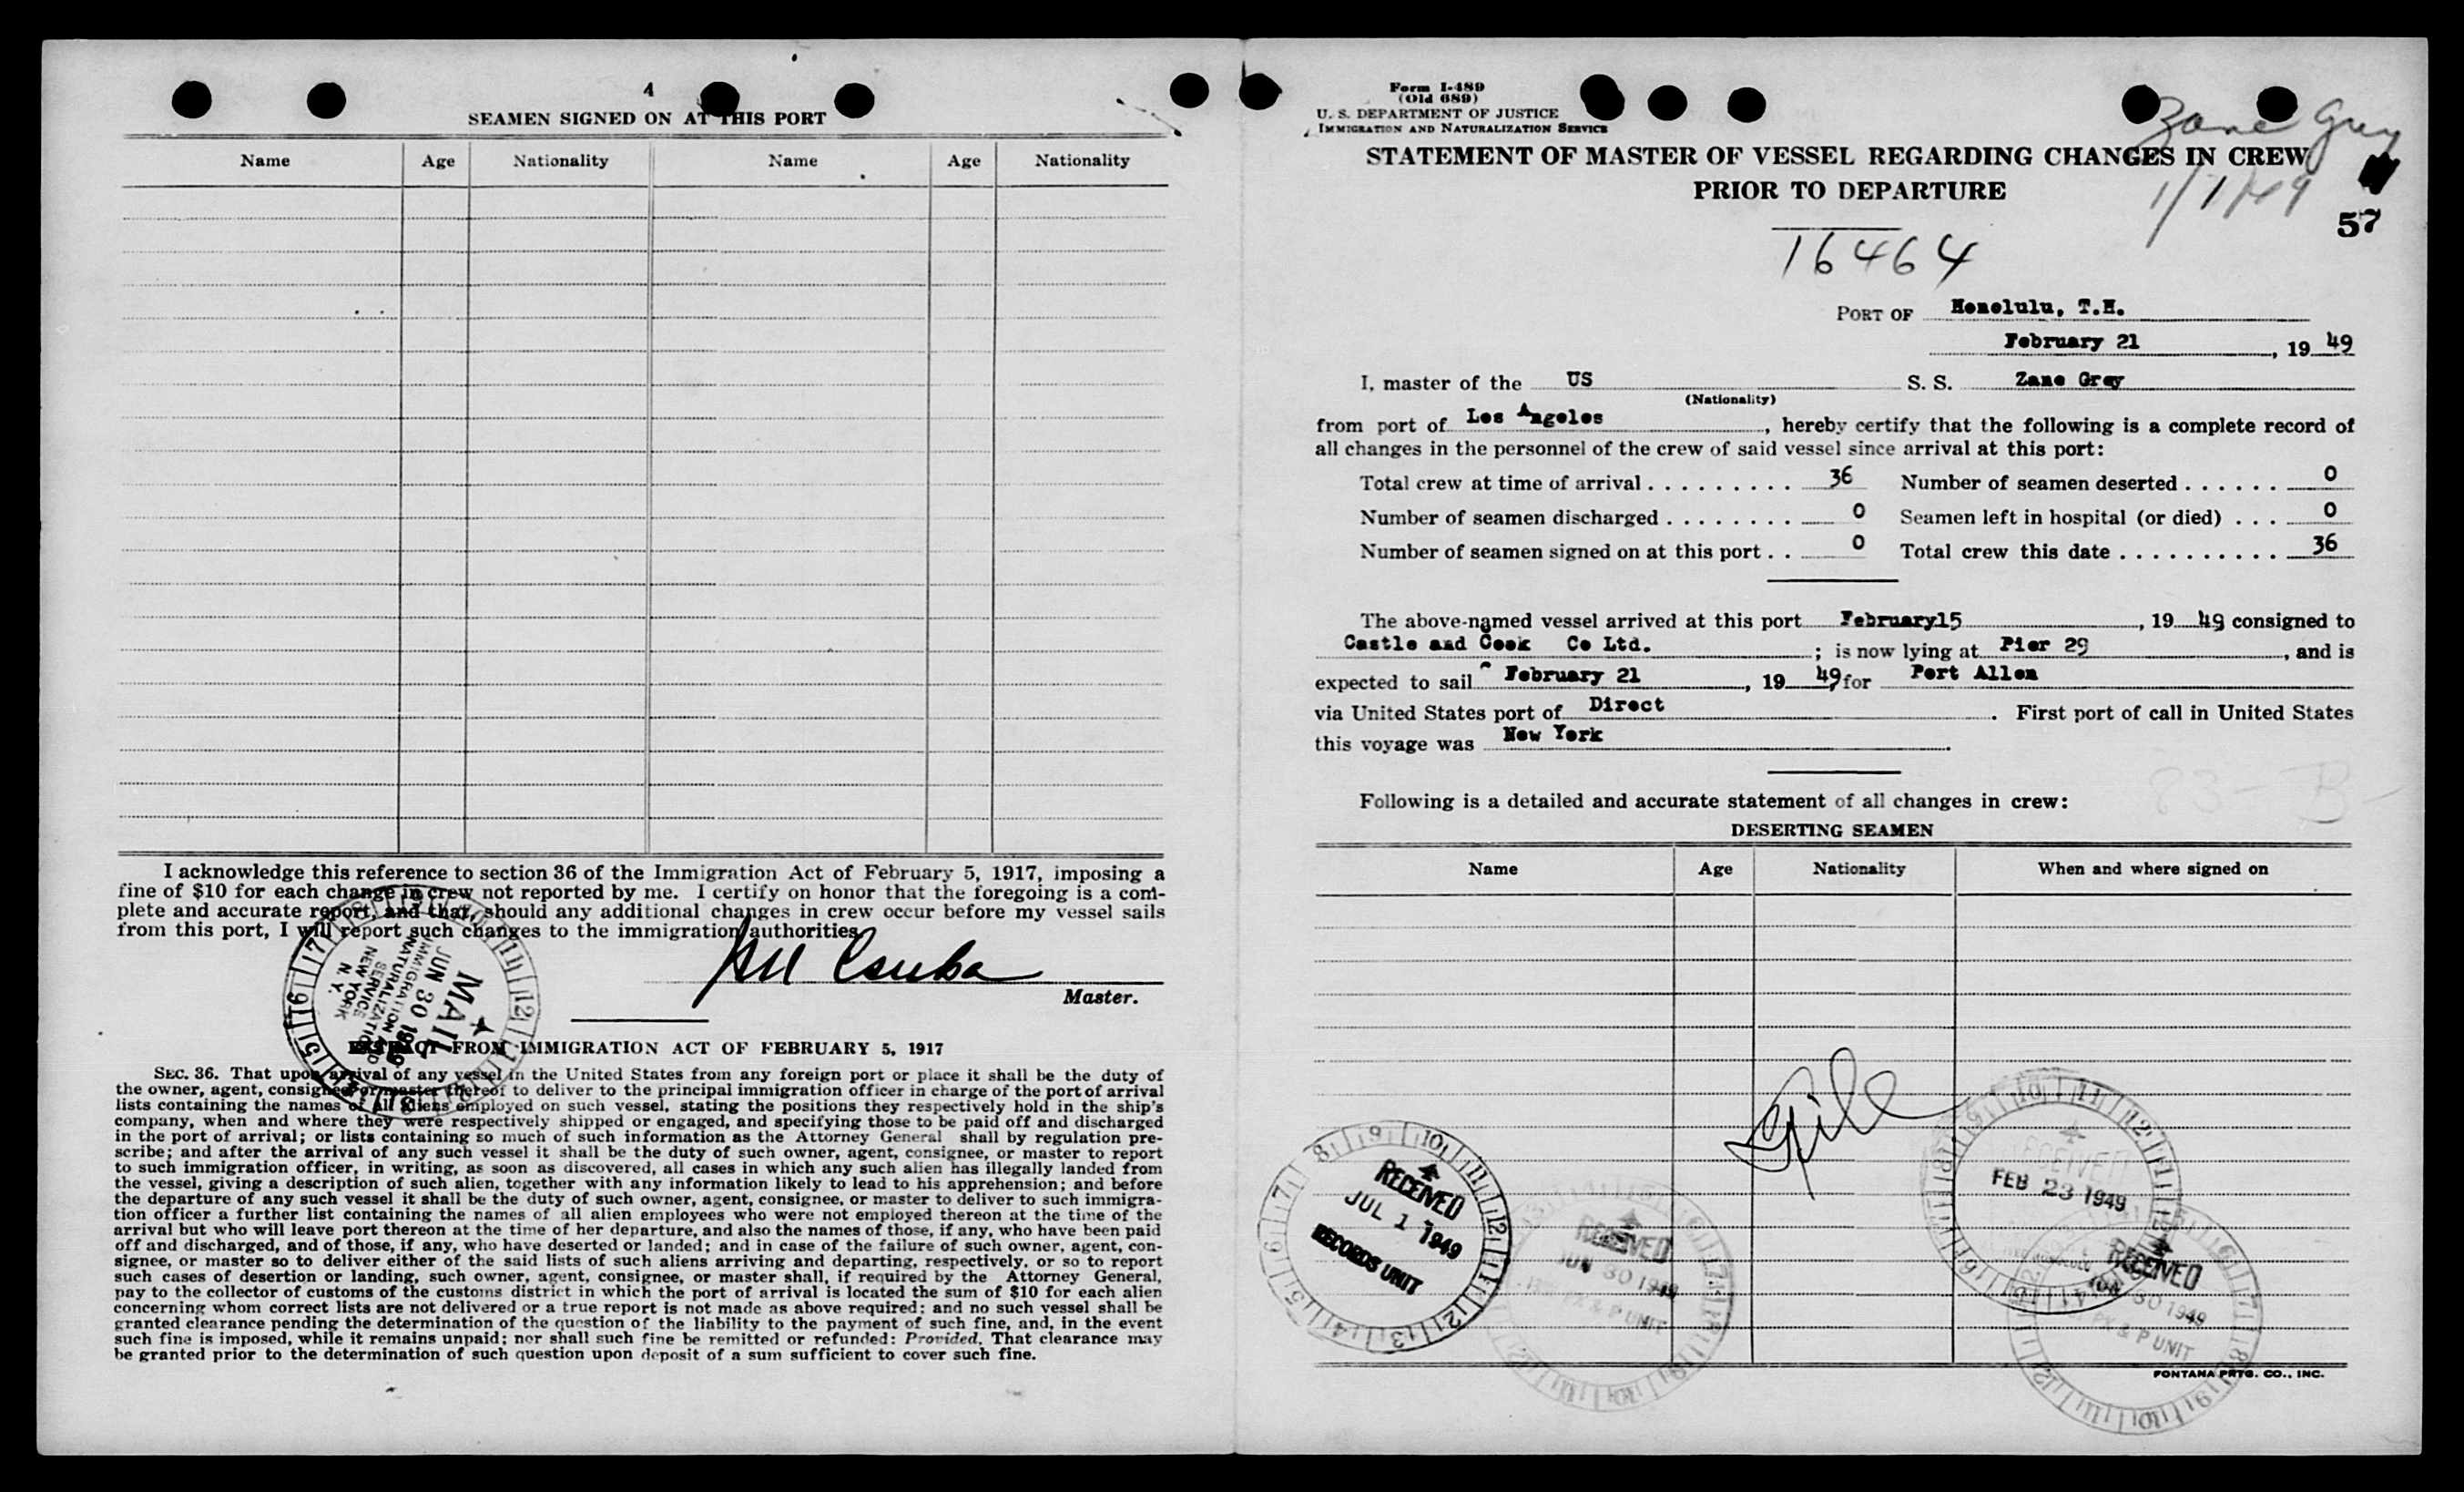 4
SEAMEN SIGNED ON AT THIS PORT
Name Age Nationality Name Age Nationality
I acknowledge this reference to section 36 of the Immigration Act of February 5, 1917, imposing a
fine of $10 for each change in crew not reported by me. I certify on honor that the foregoing is a com-
plete and accurate report, and that, should any additional changes in crew occur before my vessel sails
from this port, I will report such changes to the immigration authorities.
Master.
MAIL
JUN 30 1949
IMMIGRATION AND
NATURALIZATION
SERVICE
NEW YORK
N. Y.
EXTRACT FROM IMMIGRATION ACT OF FEBRUARY 5, 1917
SEC. 36. That upon arrival of any vessel in the United States from any foreign port or place it shall be the duty of
the owner, agent, consignee or master thereof to deliver to the principal immigration officer in charge of the port of arrival
lists containing the names of all aliens employed on such vessel, stating the positions they respectively hold in the ship's
company, when and where they were respectively shipped or engaged, and specifying those to be paid off and discharged
in the port of arrival; or lists containing so much of such information as the Attorney General shall by regulation pre-
scribe; and after the arrival of any such vessel it shall be the duty of such owner, agent, consignee, or master to report
to such immigration officer, in writing, as soon as discovered, all cases in which any such alien has illegally landed from
the vessel, giving a description of such alien, together with any information likely to lead to his apprehension; and before
the departure of any such vessel it shall be the duty of such owner, agent, consignee, or master to deliver to such immigra-
tion officer a further list containing the names of all alien employees who were not employed thereon at the time of the
arrival but who will leave port thereon at the time of her departure, and also the names of those, if any, who have been paid
off and discharged, and of those, if any, who have deserted or landed; and in case of the failure of such owner, agent, con-
signee, or master so to deliver either of the said lists of such aliens arriving and departing, respectively, or so to report
such cases of desertion or landing, such owner, agent, consignee, or master shall, if required by the Attorney General,
pay to the collector of customs of the customs district in which the port of arrival is located the sum of $10 for each alien
concerning whom correct lists are not delivered or a true report is not made as above required; and no such vessel shall be
granted clearance pending the determination of the question of the liability to the payment of such fine, and, in the event
such fine is imposed, while it remains unpaid; nor shall such fine be remitted or refunded: Provided, That clearance may
be granted prior to the determination of such question upon deposit of a sum sufficient to cover such fine.
Form I-489
(Old 689)
U. S. DEPARTMENT OF JUSTICE
IMMIGRATION AND NATURALIZATION SERVICE
Zane Grey
1/1/49
STATEMENT OF MASTER OF VESSEL REGARDING CHANGES IN CREW
PRIOR TO DEPARTURE
57
16464
PORT OF Honolulu, T.H.
February 21, 19 49
I, master of the US S. S. Zane Grey
(Nationality)
from port of Los Angeles, hereby certify that the following is a complete record of
all changes in the personnel of the crew of said vessel since arrival at this port:
Total crew at time of arrival . . . . . . . . . 36 Number of seamen deserted . . . . . . 0
Number of seamen discharged . . . . . . . . 0 Seamen left in hospital (or died) . . . 0
Number of seamen signed on at this port . . 0 Total crew this date . . . . . . . . . . 36
The above-named vessel arrived at this port February15, 19 49 consigned to
Castle and Cook Co Ltd. ; is now lying at Pier 29, and is
expected to sail February 21, 19 49 for Port Allen
via United States port of Direct. First port of call in United States
this voyage was New York.
83-B-
Following is a detailed and accurate statement of all changes in crew:
DESERTING SEAMEN
Name Age Nationality When and where signed on
File
RECEIVED
JUL 1 1949
RECORDS UNIT
RECEIVED
JUN 30 1949
P UNIT
RECEIVED
FEB 23 1949
RECEIVED
JUN 30 1949
P UNIT
FONTANA PRTG. CO., INC.